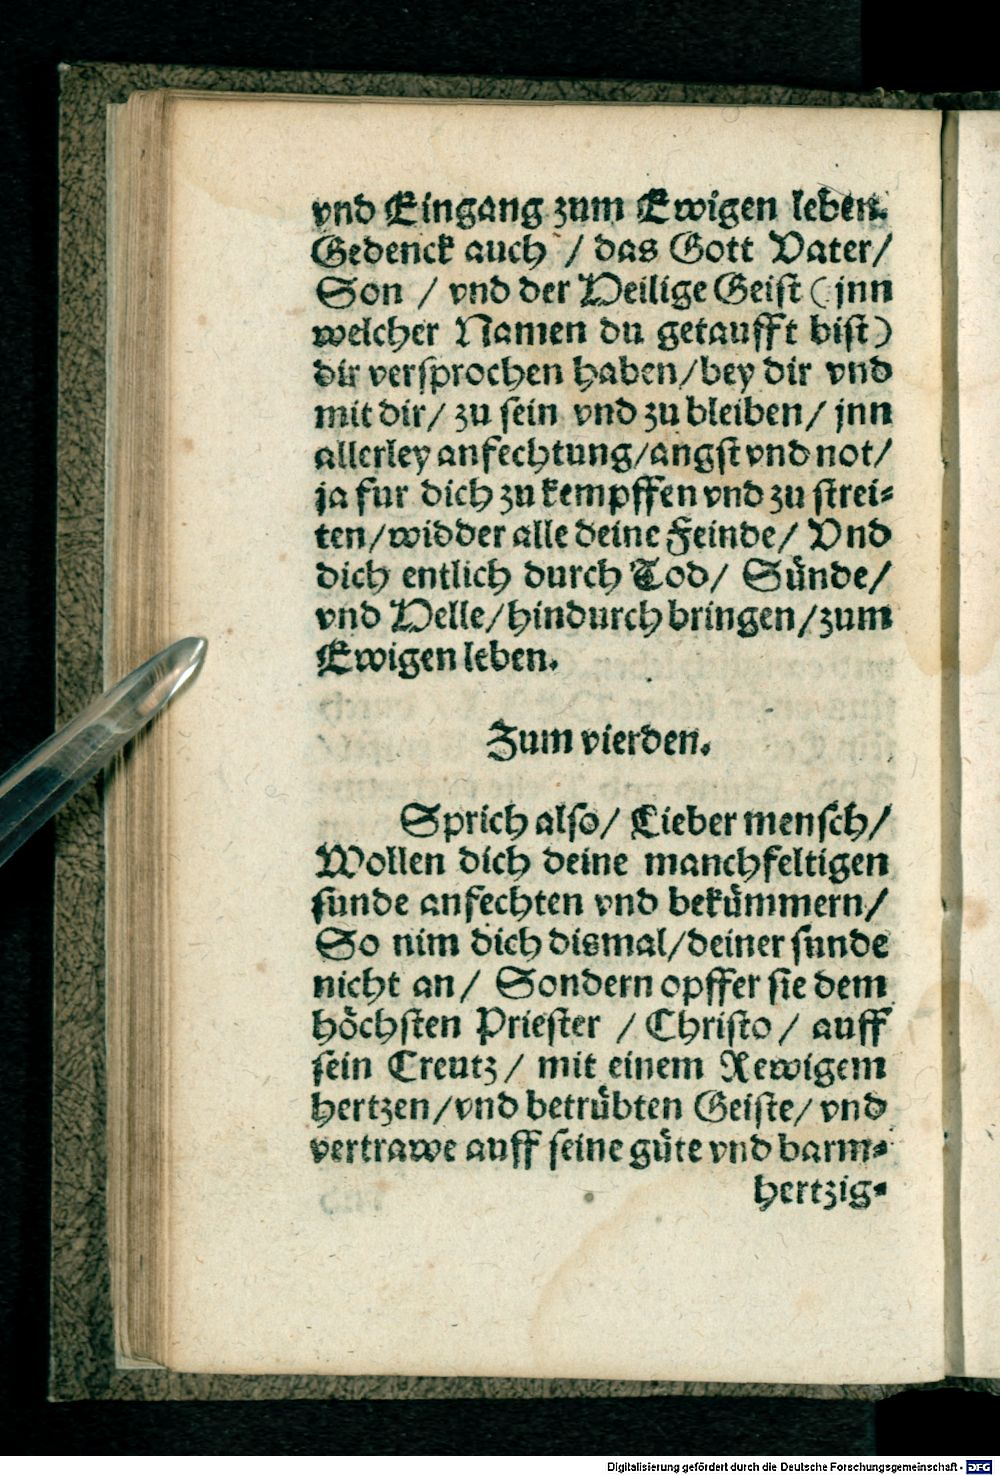 vnd Eingang zum Ewigen leben.
Gedenck auch / das Gott Vater/
Son / vnd der Heilige Geist (jnn
welcher Namen du getaufft bist)
dir versprochen haben/bey dir vnd
mit dir/ zu sein vnd zu bleiben/ jnn
allerley anfechtung/angst vnd not/
ja fur dich zu kempffen vnd zu strei⸗
ten/widder alle deine Feinde/ Vnd
dich entlich durch Tod/ Sünde/
vnd Helle/hindurch bringen/zum
Ewigen leben.
Zum vierden.
Sprich also/ Lieber mensch/
Wollen dich deine manchfeltigen
sunde anfechten vnd bekümmern/
So nim dich dismal/deiner sunde
nicht an/ Sondern opffer sie dem
höchsten Priester / Christo/ auff
sein Creutz/ mit einem Rewigem
hertzen/vnd betrübten Geiste/ vnd
vertrawe auff seine güte vnd barm⸗
hertzig⸗
Digitalisierung gefördert durch die Deutsche Forschungsgemeinschaft - DFG